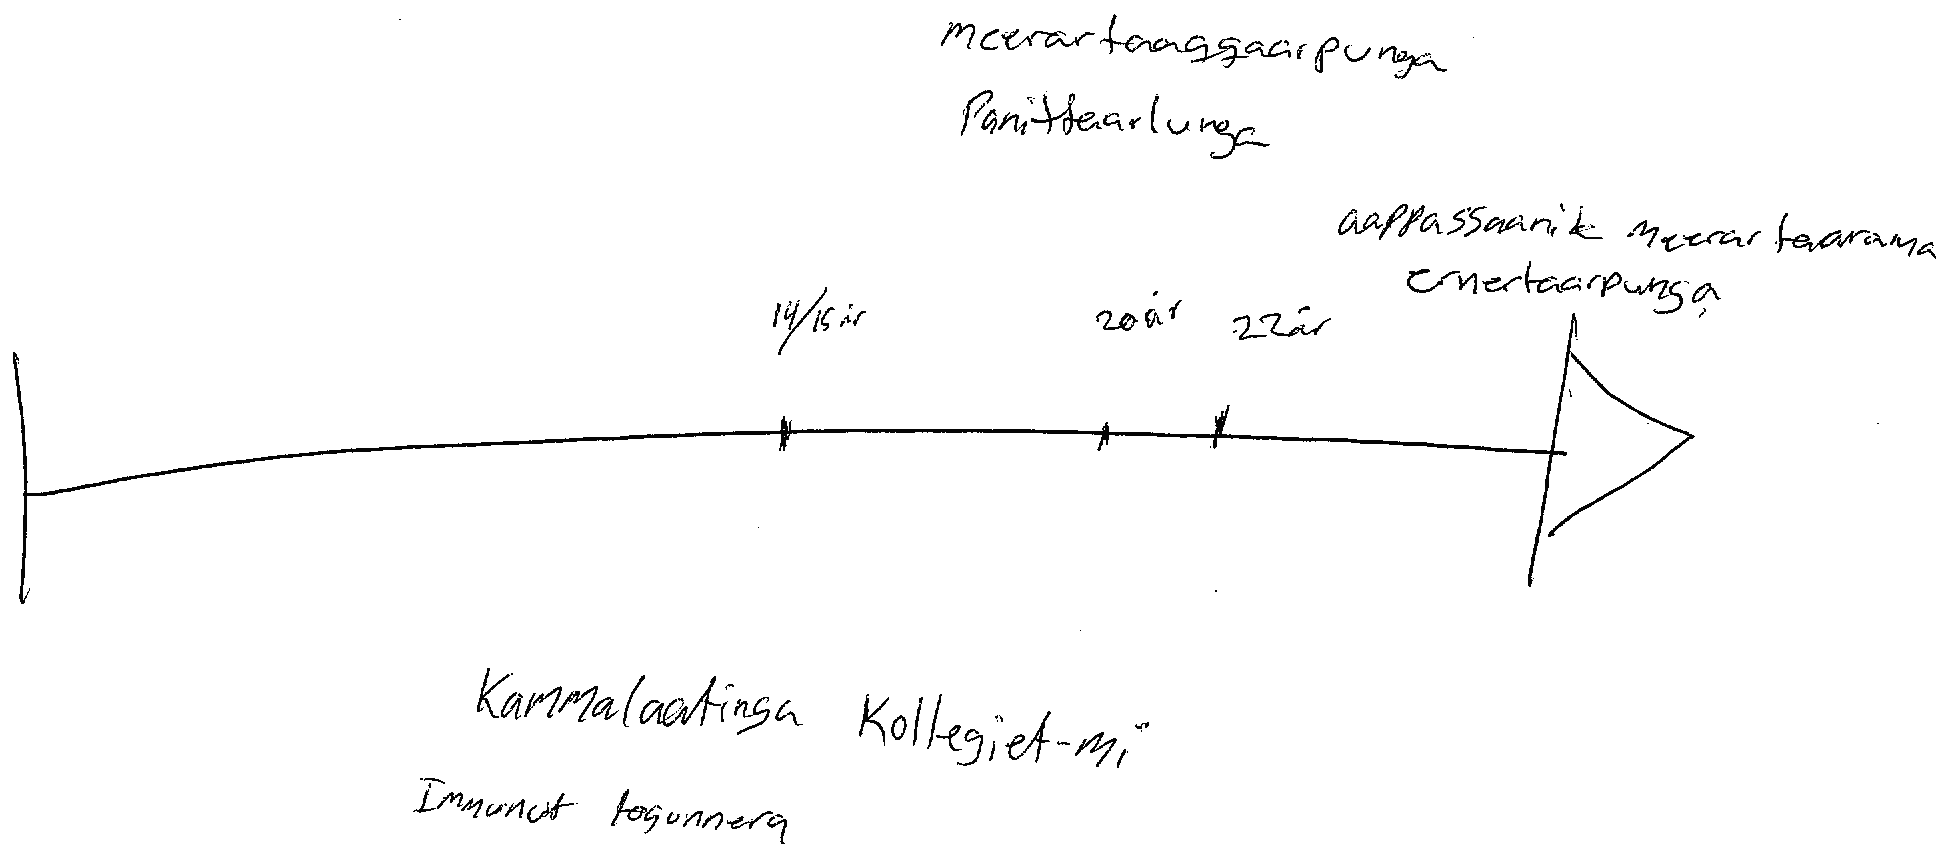 meerartaaqqaarpunga
Panittaarlunga
aappassaanik meerartaarama
ernertaarpunga
14/15 år
20 år
22 år
Kammalaatinga Kollegiet-mi
Imminut toqunnera